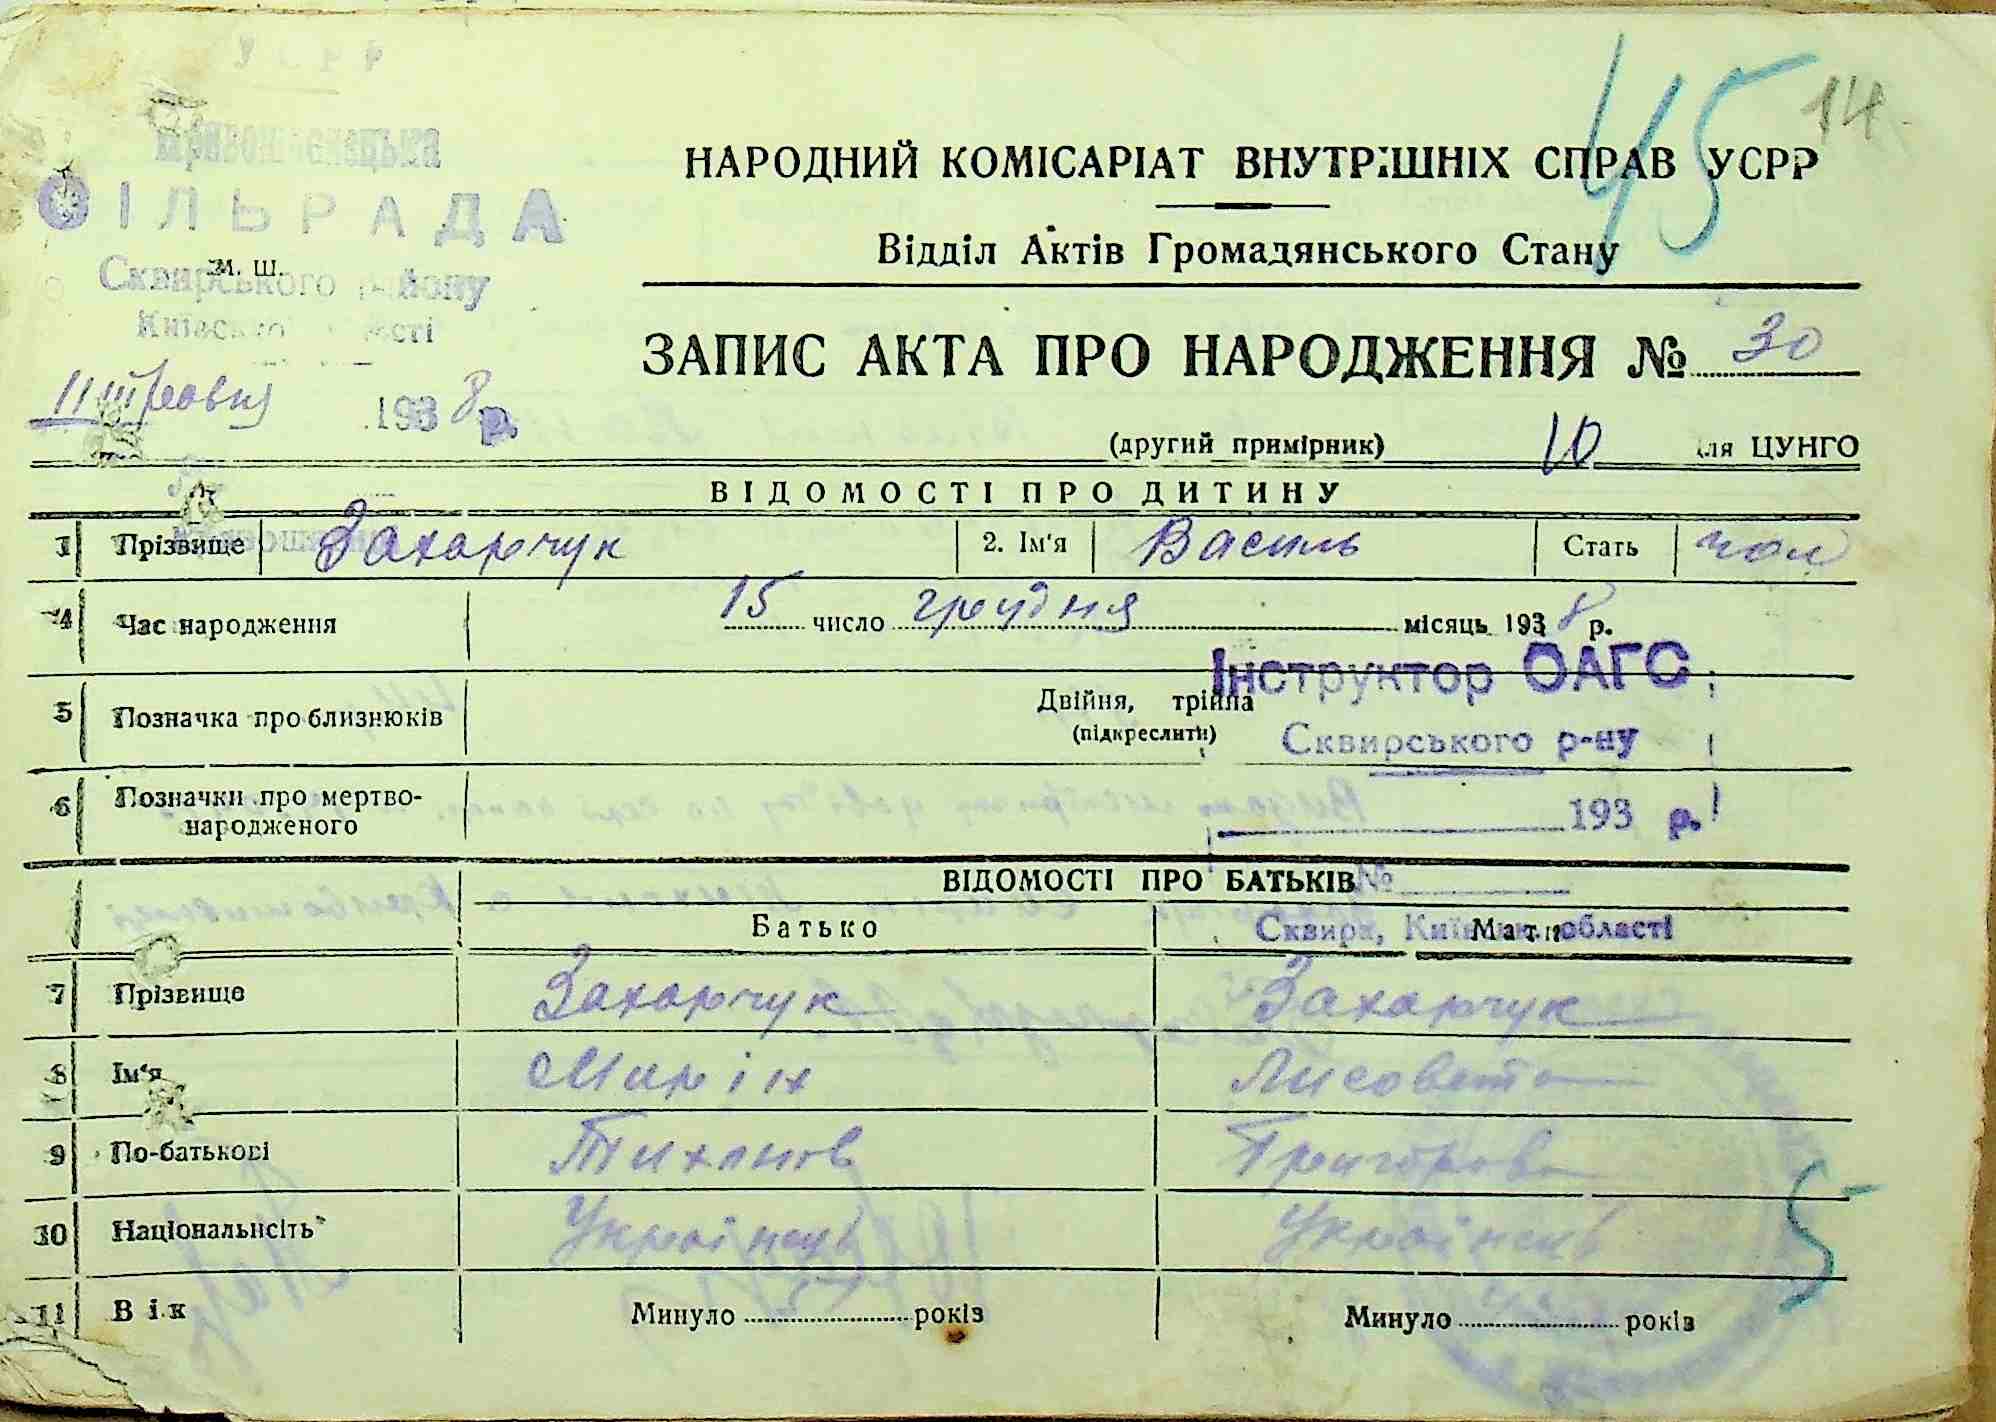 УСРР
45 14
СІЛЬРАДА
НАРОДНИЙ КОМІСАРІАТ ВНУТРІШНІХ СПРАВ УСРР
Відділ Актів Громадянського Стану
м. ш.
Сквирського району
Київської області
ЗАПИС АКТА ПРО НАРОДЖЕННЯ № 30
193 8 р.
(другий примірник) 10 для ЦУНГО
ВІДОМОСТІ ПРО ДИТИНУ
1 Прізвище Захарчук 2. Ім'я Василь Стать чол
4 Час народження 15 число грудня місяць 193 8 р.
Інструктор ОАГС
5 Позначка про близнюків Двійня, трійня
(підкреслити)
Сквирського р-ну
6 Позначки про мертво-
народженого
193 р.
ВІДОМОСТІ ПРО БАТЬКІВ
№
Батько Мати
Сквира, Київської області
7 Прізвище Захарчук Захарчук
8 Ім'я Миріх Лисовета
9 По-батькові Тихонов Григорова
10 Національнсіть Українець Українець
5
11 Вік Минуло років Минуло років